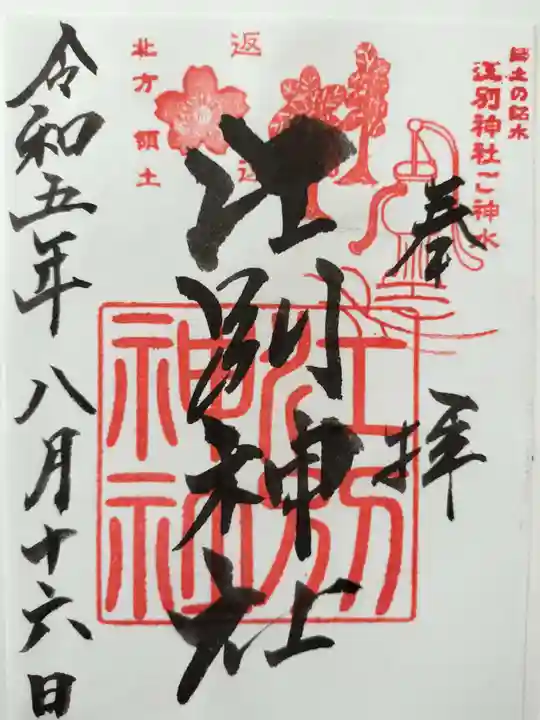 郷土の銘水
江別神社ご神水
奉拝
返還
北方領土
江別神社
江別神社
令和五年八月十六日